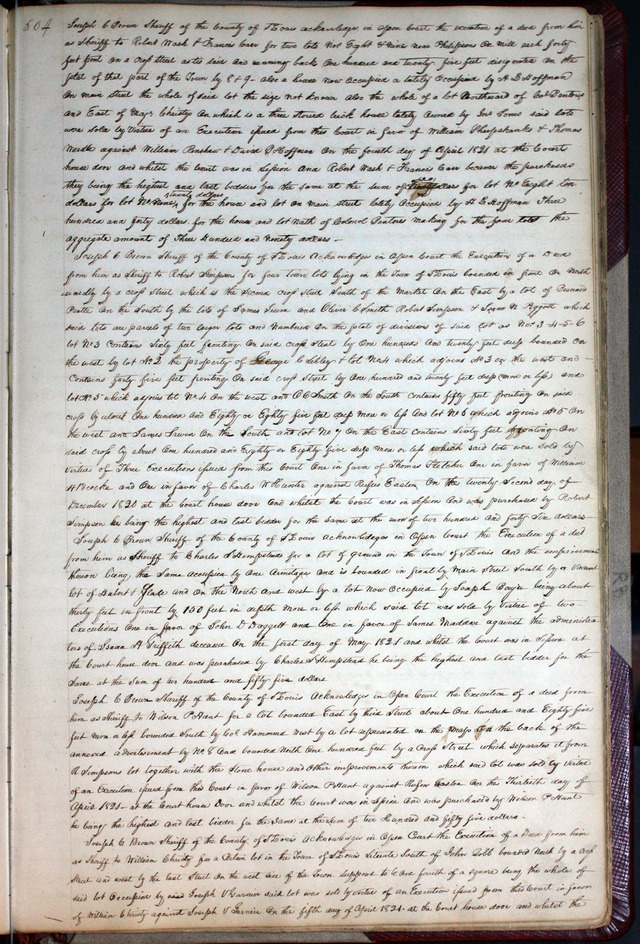 504
Joseph C Brown Sheriff of the County of St Louis acknowledges in Open Court the execution of a deed from him
as Sheriff to Robert Wash & Frances Carr for two lots No Eight & Nine near Philipsons Ox Mill each forty
feet front on a cross street as he said and running back One hundred and twenty five feet designated on the
platat of that part of the Town by 8 & 9 - also a house now occupied & lately Occupied by H L Hoffman
On main Street the whole of said lot the size not known also the whole of a lot Northward of Col Pentons
and East of Majr Christys On which is a three storied brick house lately owned by Jones said lots
were sold by Virtue of an Execution issued from this Court in favor of William Sheepshanks & Thomas
North against William Renshaw & David C Hoffman On the fourth day of April 1821 at the Court
house door and whilst the Court was in Session And Robert Wash & Frances Carr became the purchasers
they being the highest and last bidders for the same at the sum of dollars for lot No Eight ten
twenty dollars
dollars for lot No Nine, for the house and lot on main Street lately Occupied by H L Hoffman Three
hundred and forty dollars for the house and lot North of Colonel Pentons making for the four lots the
aggregate amount of Three Hundred and Ninety dollars —
Joseph C Brown Sheriff of the County of St Louis Acknowledges in Open Court the Execution of a Deed
from him as Sheriff to Robert Simpson for four Town lots lying in the Town of St Louis bounded in front On North
wardly by a cross Street which is the Second cross Street South of the Market On the East by a lot of Bernard
Pratte On the South by the lots of James Irwin and Oliver C Smith Robert Simpson & which
said lots are parcels of two larger lots and Numbered On the platat of divisions of said lot as Nos 3 4 5 6
lot No 3 Contains Sixty feet fronting On said cross Street by One hundred and twenty feet deep bounded On
the west by lot No 2 the property of George C Sibley & lot No 4 which adjoins No 3 on the west and
Contains forty five feet fronting On said cross Street by One hundred and twenty feet deep (more or less) and
lot No 5 which adjoins lot No 4 On the west and O C Smith On the South contains fifty feet fronting on said
cross by about One hundred and Eighty or Eighty five feet deep more or less And lot No 6 which adjoins No 5 On
the west and James Irwin On the South and lot No 7 On the East contains Sixty feet fronting On
said cross by about One hundred and Eighty or Eighty five deep more or less which said lots were sold by
Virtue of Three Executions issued from this Court One in favor of Thomas Fletcher One in favor of William
and One in favor of Charles W Hunter against Rufus Easton On the twenty Second day of
December 1820 at the Court house door And whilst the Court was in Session And was purchased by Robert
Simpson he being the highest and last bidder for the same at the sum of two hundred and forty Six dollars
Joseph C Brown Sheriff of the County of St Louis Acknowledges in Open Court the Execution of a deed
from him as Sheriff to Charles S Hempstead for a lot of ground in the Town of St Louis And the improvements
thereon being the Same Occupied by One Armitage And is bounded in front by Main Street South by a Vacant
lot of Habert & Glade and On the North and west by a lot Now Occupied by Joseph Boyce being about
thirty feet in front by 100 feet in depth more or less which said lot was sold by Virtue of two
Executions One in favor of John D Daggett and One in favor of James Maddan against the administra
tors of Isaac A Griffith deceased On the first day of May 1821 and whilst the Court was in Session at
the Court house door and was purchased by Charles S Hempstead he being the highest and last bidder for the
Same at the Sum of one hundred and fifty five dollars
Joseph C Brown Sheriff of the County of St Louis Acknowledges in Open Court the Execution of a deed from
him as Sheriff to Wilson P Hunt for a lot bounded East by third Street about One hundred and Eighty five
feet more or less bounded South by Col Hammond West by a lot represented on the on the back of the
annexed advertisement by No 4 And bounded North One hundred feet by a Cross Street which separates it from
R Simpsons lot together with the Stone house and Other improvements thereon which said lot was sold by Virtue
of an Execution issued from this Court in favor of Wilson P Hunt against Rufus Easton On the Thirtieth day of
April 1821 - at the Court house Door and whilst the Court was in Session And was purchased by Wilson P Hunt
he being the highest and last bidder for the Same at the Sum of two Hundred and fifty five dollars.
Joseph C Brown Sheriff of the County of St Louis Acknowledges in Open Court the Execution of a Deed from him
as Sheriff to William Christy for a Certain lot in the Town of St Louis situate South of John Coll bounded North by a cross
Street and west by the last Street On the west side of the Town supposed to be one fourth of a square being the whole of
said lot Occupied by said Joseph V Garnier said lot was sold by virtue of an Execution issued from this Court in favor
of William Christy against Joseph V Garnier On the fifth day of April 1821 - at the Court house door and whilst the